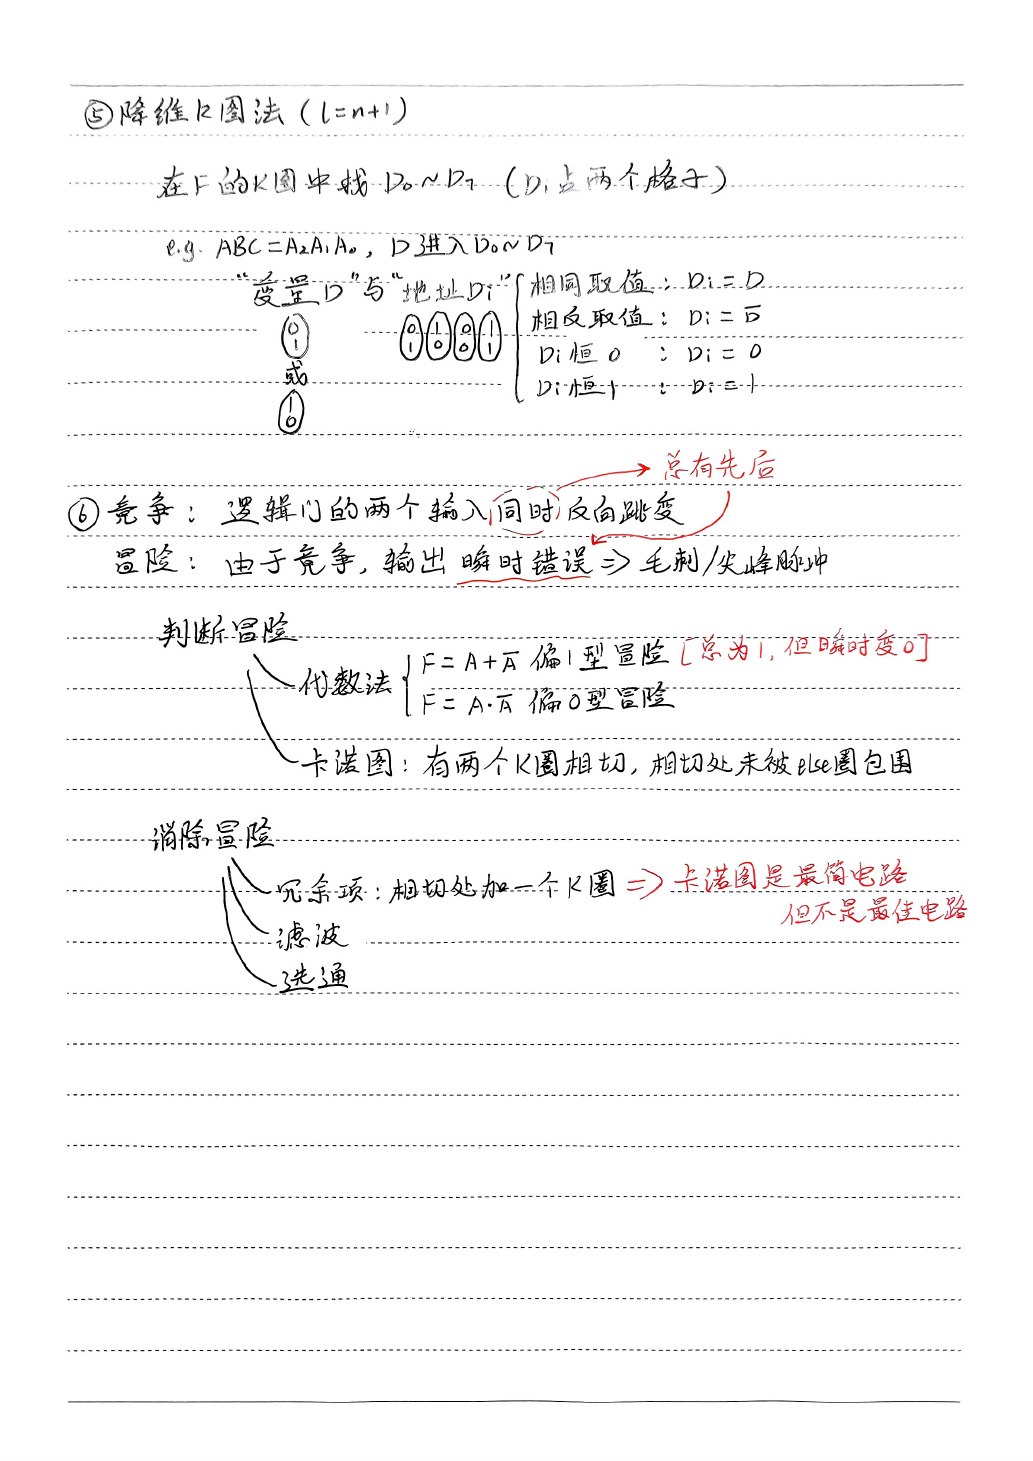 ⑤降维K图法（l=n+1）
在F的K图中找 D₀~D₇（Dᵢ占两个格子）
e.g. ABC=A₂A₁A₀，D进入D₀~D₇
“变量D”与“地址Di” 相同取值：Di=D
相反取值：Di=D̅
0 1 或 1 0
0 1 1 0 0 0 1 1
Di恒0：Di=0
Di恒1：Di=1
总有先后
⑥竞争：逻辑门的两个输入同时反向跳变
冒险：由于竞争，输出瞬时错误⇒毛刺/尖峰脉冲
判断冒险
代数法 F=A+A̅ 偏1型冒险 [总为1，但瞬时变0]
F=A·A̅ 偏0型冒险
卡诺图：有两个K圈相切，相切处未被else圈包围
消除冒险
冗余项：相切处加一个K圈⇒卡诺图是最简电路
但不是最佳电路
滤波
选通